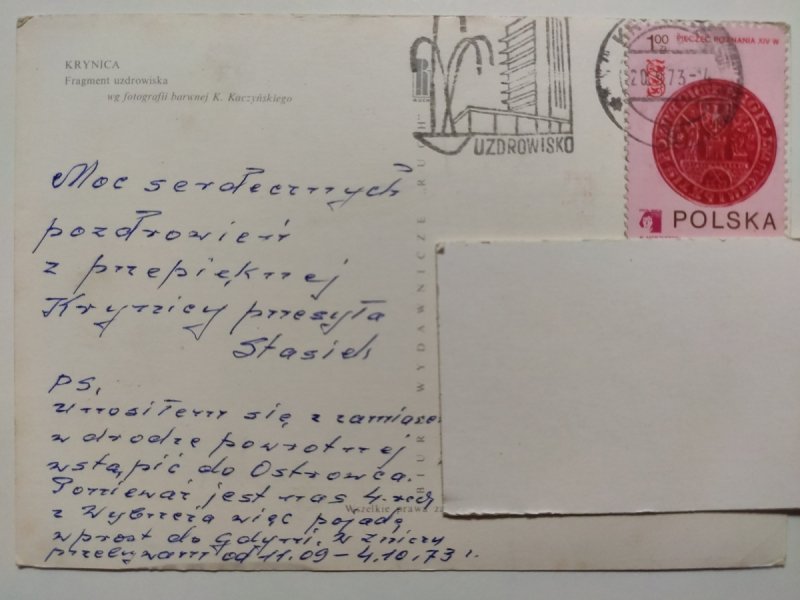 KRYNICA
Fragment uzdrowiska
wg fotografii barwnej K. Kaczyńskiego
UZDROWISKO
1.00
PIECZĘĆ POZNANIA XIV W
73
POLSKA
Moc serdecznych
pozdrowień
z przepięknej
Krynicy przesyła
Stasiek
PS.
Unosiłem się z zamiare
w drodze powrotnej
wstąpić do Ostrowca.
Ponieważ jest nas 4.
z Wybrzeża więc pojadę
wprost do Gdyni. W
przebywam od 11.09 – 4.10.73 r.
BIUR WYDAWNICZE "RUCH"
Wszelkie prawa za